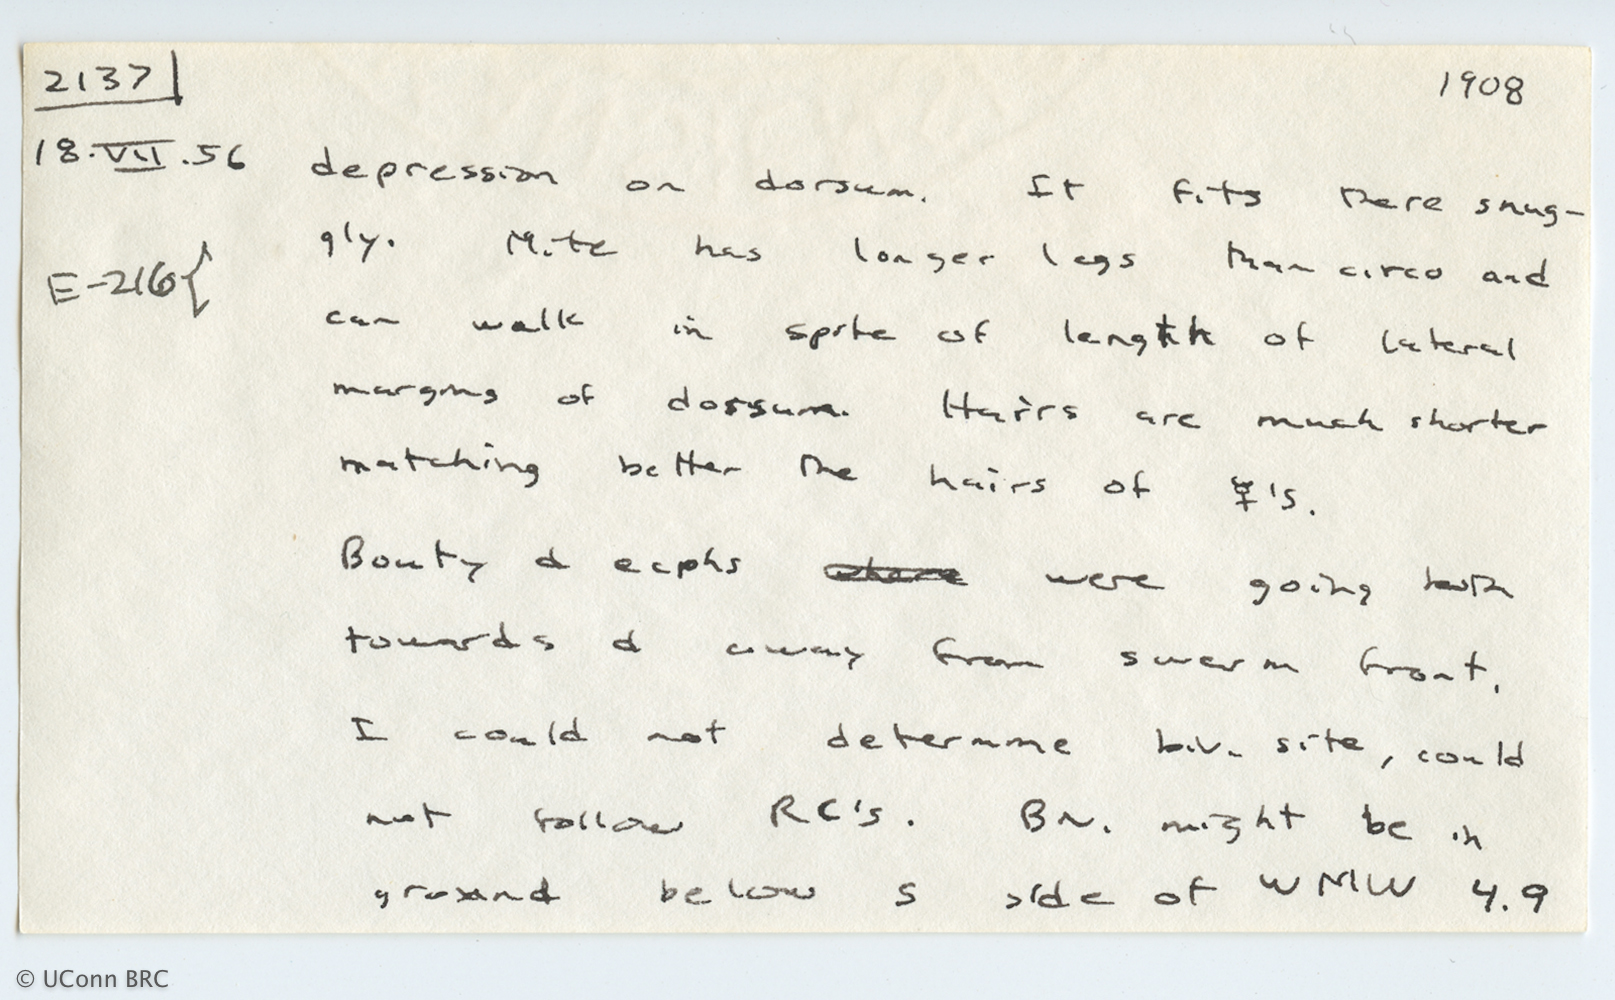 2137 1908
18.VII.56 depression on dorsum. It fits there snug-
gly. Mite has longer legs than circo and
E-216{
can walk in spite of length of lateral
margins of dorsum. Hairs are much shorter
matching better the hairs of ☿'s.
Bouty & ecphs were going both
towards & away from swarm front.
I could not determine biv. site, could
not follow RC's. Biv. might be in
ground below S side of WMW 4.9
© UConn BRC